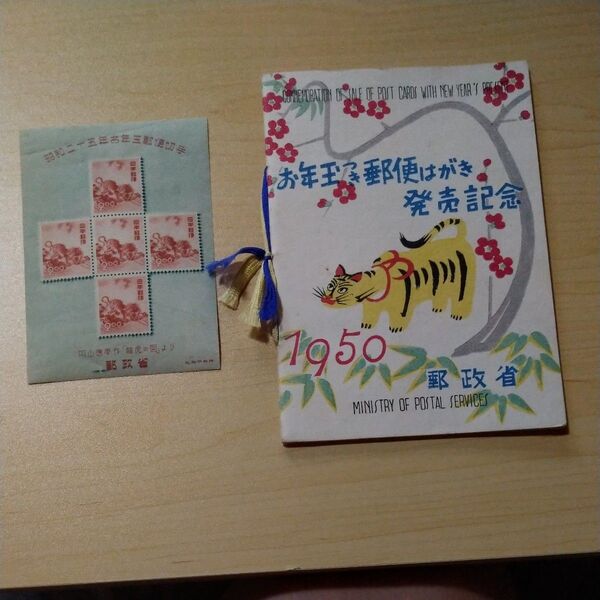 昭和二十五年お年玉郵便切手
日本郵便
2.00
日本郵便
2.00
日本郵便
2.00
日本郵便
2.00
日本郵便
2.00
円山應挙作「龍虎の図」より
郵政省
COMMEMORATION OF SALE OF POST CARDS WITH NEW YEAR'S
お年玉つき郵便はがき
発売記念
1950
郵政省
MINISTRY OF POSTAL SERVICES